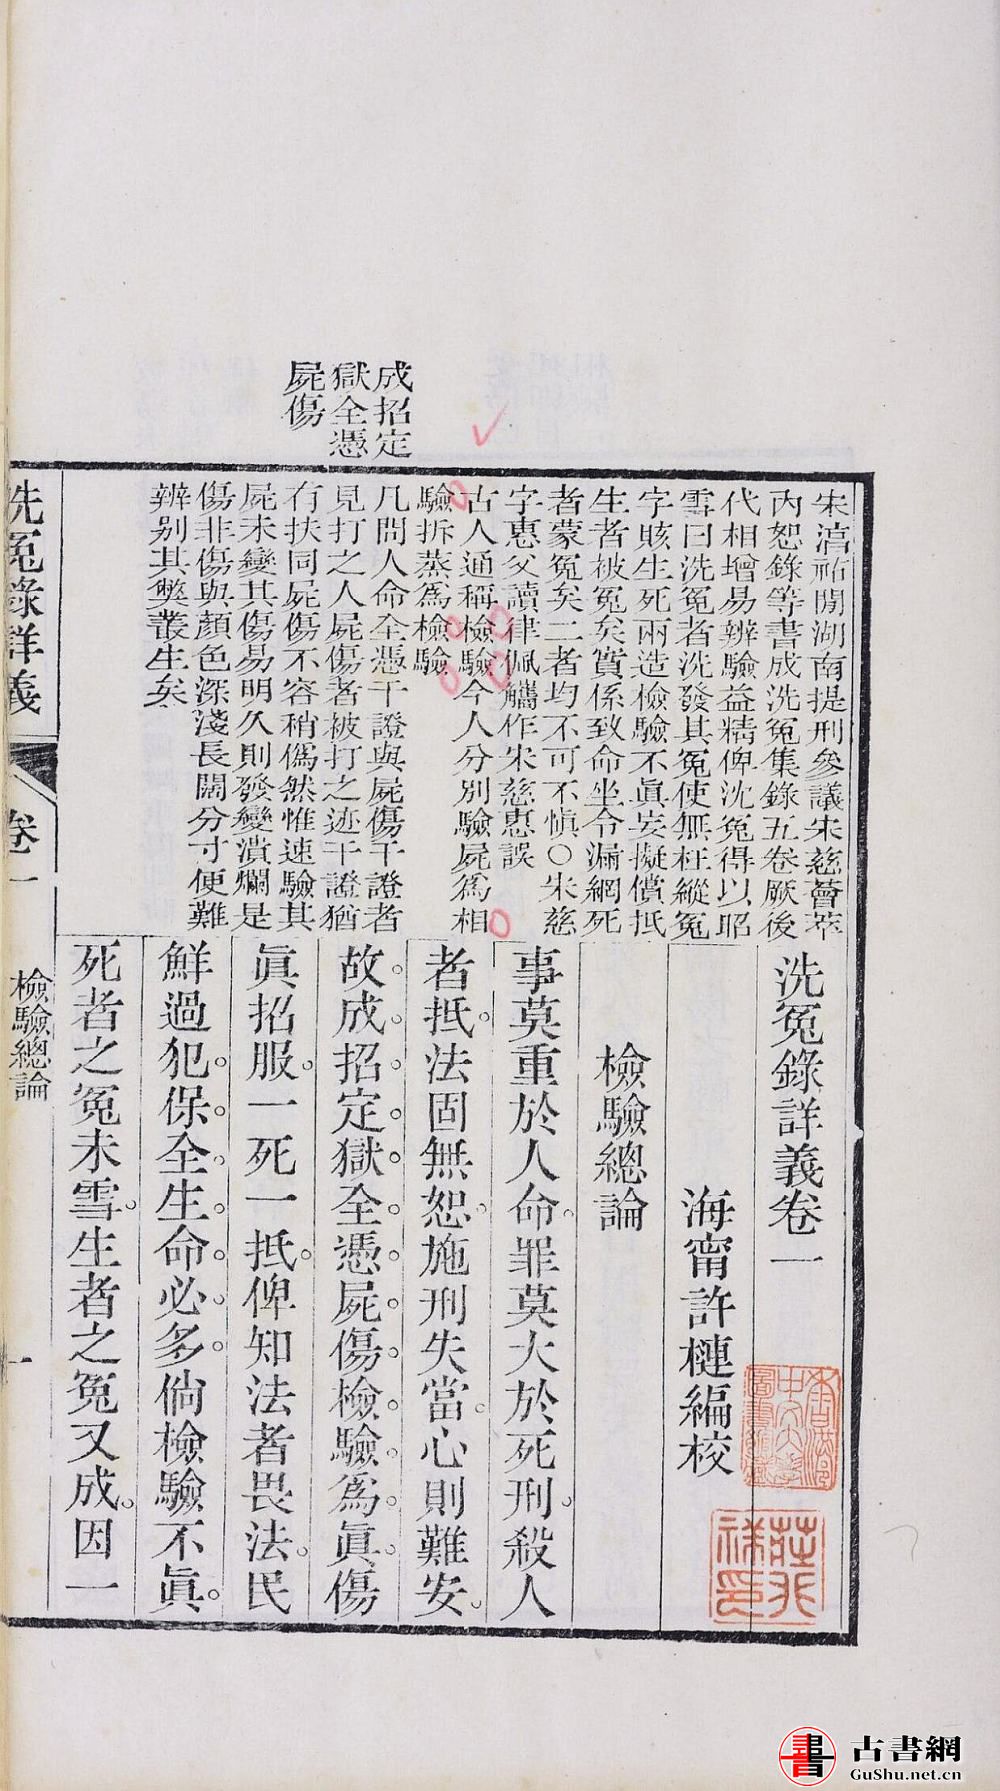 成招定
獄全憑
屍傷
宋淳祐閒湖南提刑參議宋慈薈萃
內恕錄等書成洗冤集錄五卷厥後
代相增易辨驗益精俾沈冤得以昭
雪曰洗冤者洗發其冤使無枉縱冤
字賅生死兩造檢驗不眞妄擬償抵
生者被冤矣質係致命坐令漏網死
者蒙冤矣二者均不可不愼○朱慈
字惠父讀律佩觿作宋慈惠誤
古人通稱檢驗今人分別驗屍爲相
驗拆蒸爲檢驗
凡問人命全憑干證與屍傷干證者
見打之人屍傷者被打之迹干證猶
有扶同屍傷不容稍僞然惟速驗其
屍未變其傷易明久則發變潰爛是
傷非傷與顏色深淺長闊分寸便難
辨別其獘叢生矣
洗冤錄詳義卷一
海甯許槤編校
檢驗總論
事莫重於人命。罪莫大於死刑。殺人
者抵。法固無恕。施刑失當。心則難安。
故。成。招。定。獄。全。憑。屍。傷。檢。驗。爲。眞。傷
眞招服。一死一抵。俾知法者畏法。民
鮮過犯。保。全。生。命。必。多。倘檢驗不眞。
死者之冤未雪。生者之冤又成。因一
洗冤錄詳義
卷一
檢驗總論
一
莊兆
祥印
書
古書網
GuShu.net.cn